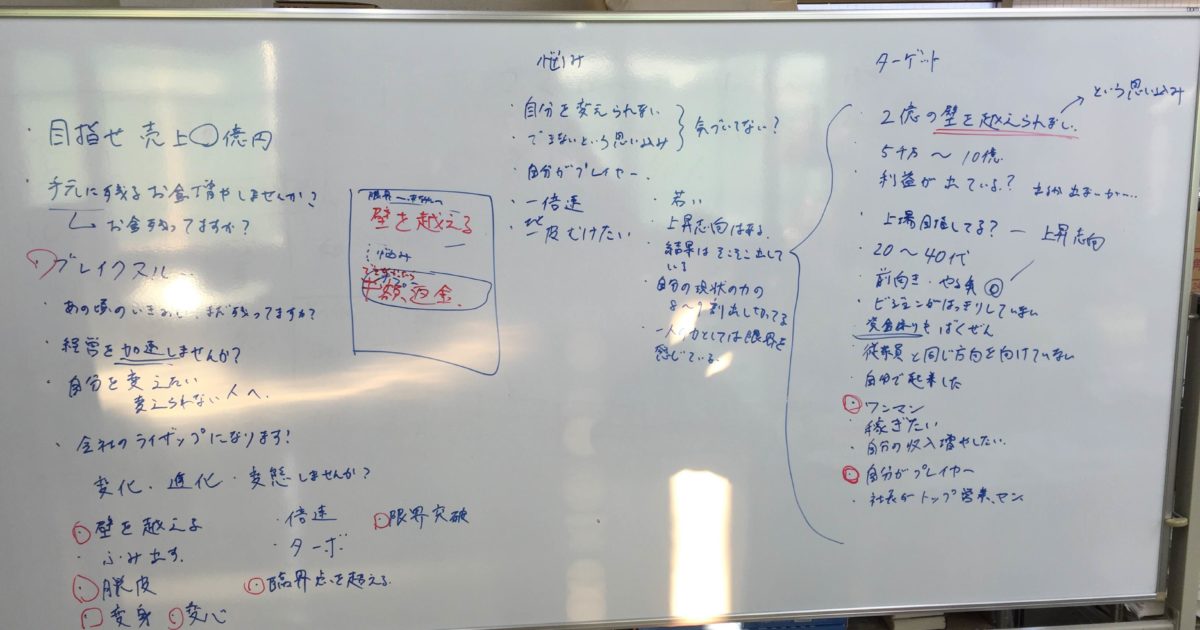 ・目指せ 売上〇億円
・手元に残るお金増やしませんか?
お金残ってますか?
ブレイクスルー
・あの頃のいきおい、まだ残ってますか?
・経営を加速しませんか?
・自分を変えたい
変えられない人へ、
・会社のライザップになります!
変化、進化・変態しませんか?
・壁を越える
・ふみ出す、
・脱皮
・変身 ・変心
・倍速
・ターボ
・臨界点を超える
・限界突破
壁を越える
悩み
半額返金
悩み
・自分を変えられない
・できないという思い込み
気づいてない?
・自分がプレイヤー、
・一倍速
・一皮むけたい
・若い
・上昇志向は有る、
・結果はそこそこ出して
いる
・自分の現状の力の
8〜9割出しきってる
・一人の力としては限界を
感じている、
ターゲット
・2億の壁を越えられない、
という思い込み
・5千万 〜 10億
・利益が出ている?
・上場目指してる? ー 上昇志向
・20〜40代
・前向き・やる気 ◎
・ビジョンがはっきりしていない
・資金繰りもばくぜん
・従業員と同じ方向を向けていない
・自分で起業した
・ワンマン
・稼ぎたい
・自分の収入増やしたい、
・自分がプレイヤー
・社長がトップ営業マン